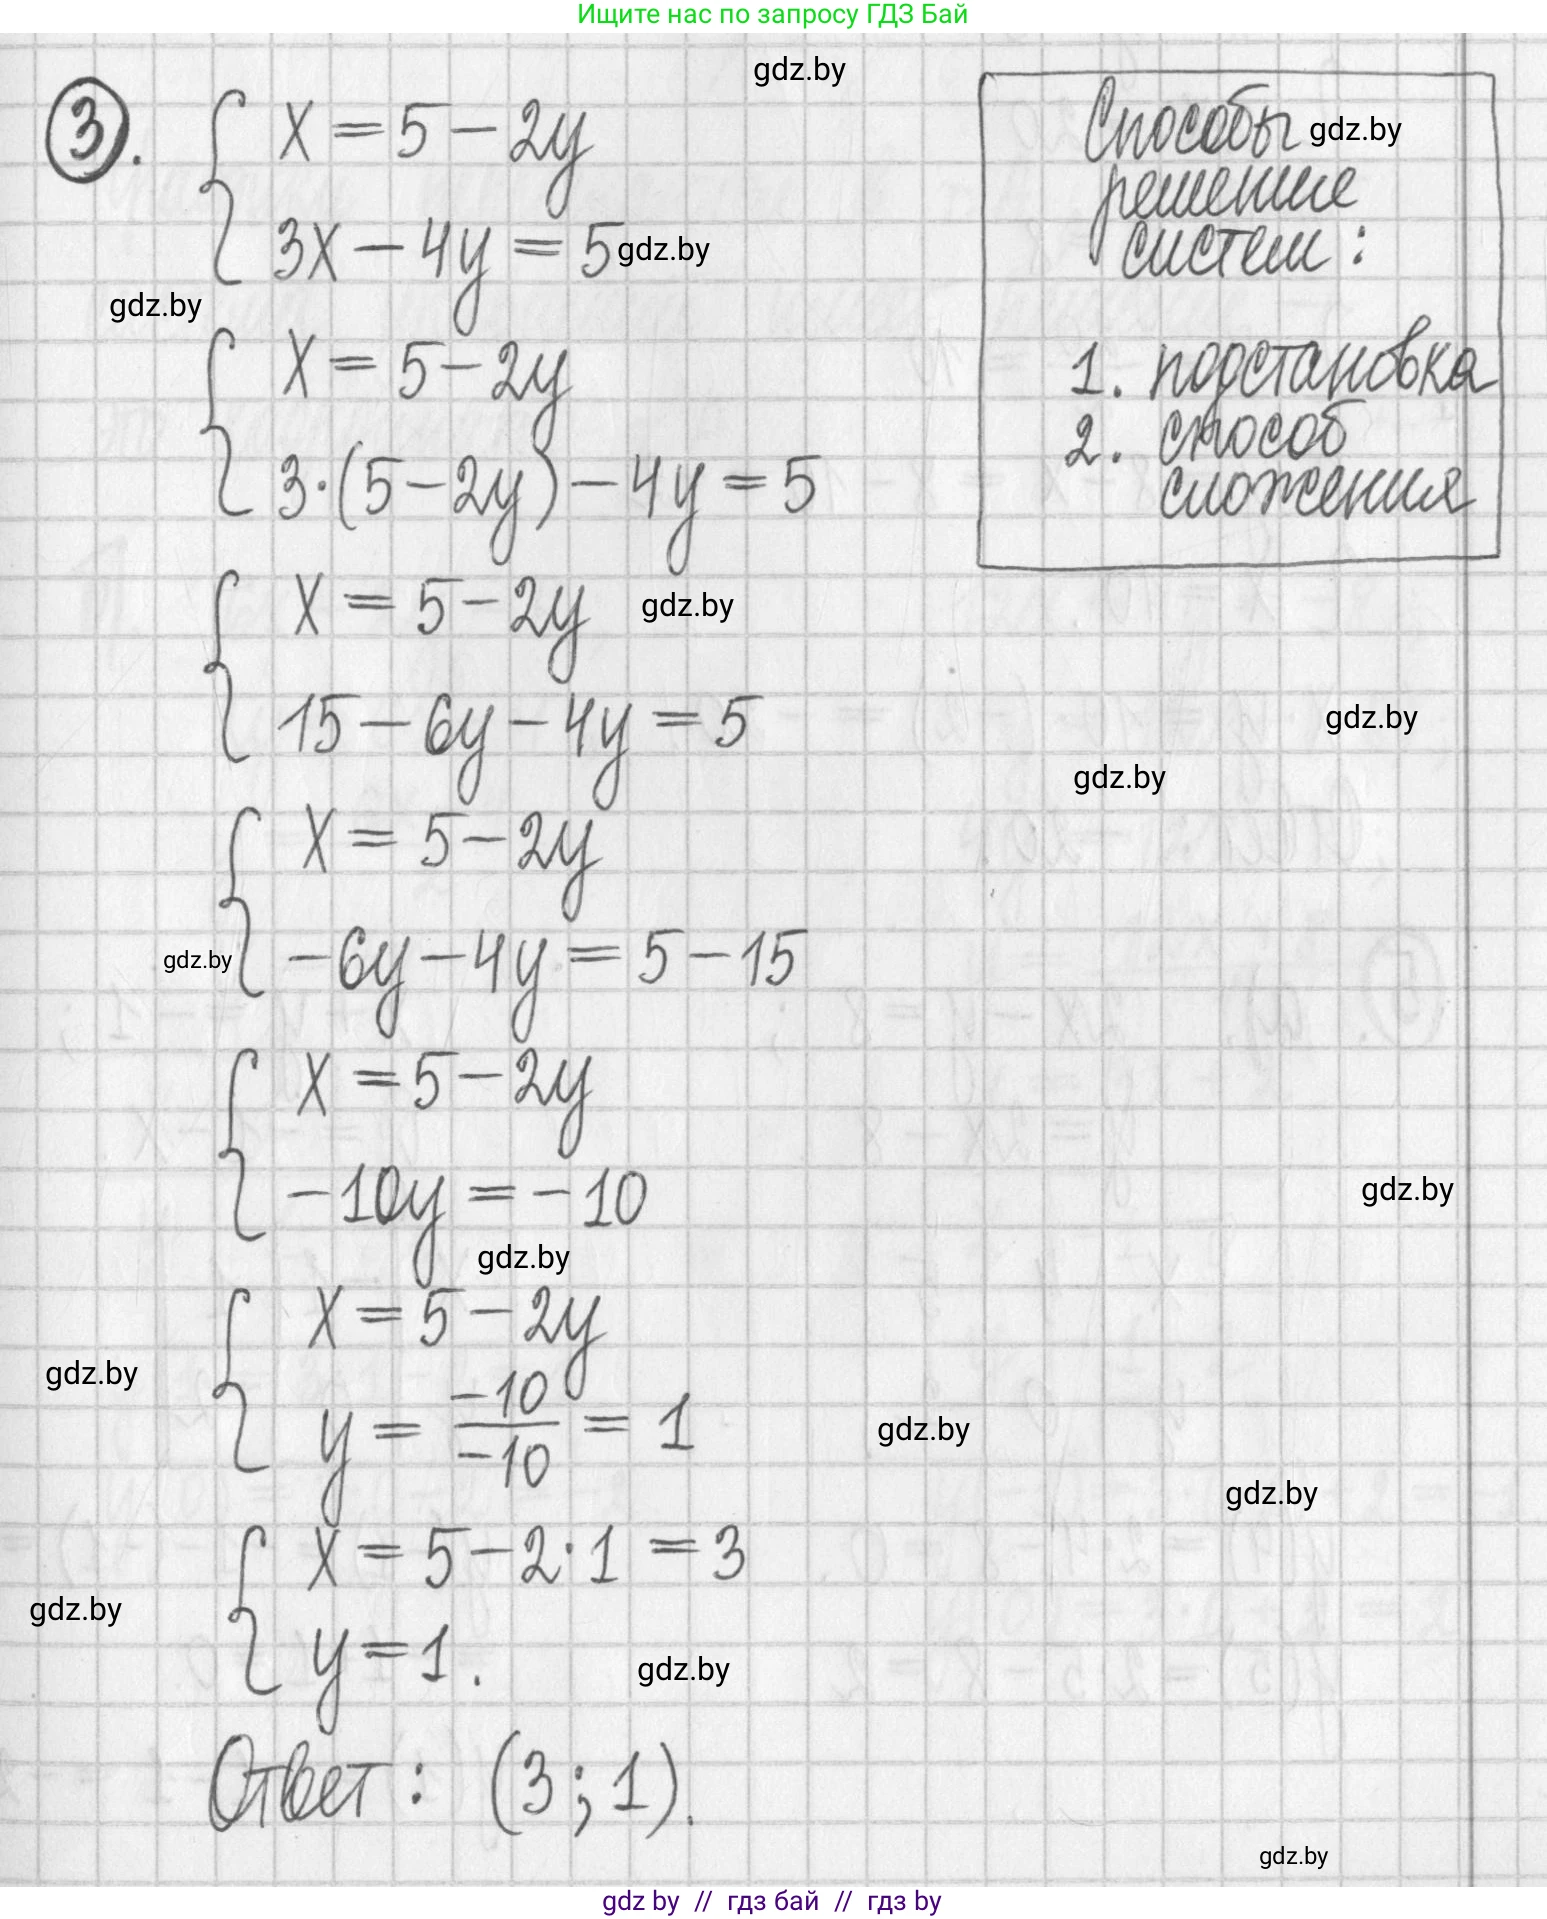 Ищите нас по запросу ГДЗ Бай
gdz.by
3. { x = 5 - 2y
3x - 4y = 5 gdz.by
gdz.by
{ x = 5 - 2y
3·(5 - 2y) - 4y = 5
{ x = 5 - 2y gdz.by
15 - 6y - 4y = 5
{ x = 5 - 2y
gdz.by -6y - 4y = 5 - 15
{ x = 5 - 2y
-10y = -10
gdz.by
{ x = 5 - 2y
gdz.by
y = -10/-10 = 1
{ x = 5 - 2·1 = 3
gdz.by
y = 1.
gdz.by
Ответ: (3; 1).
Способы gdz.by
решение
систем:
1. подстановка
2. способ
сложения
gdz.by
gdz.by
gdz.by
gdz.by
gdz.by
gdz.by
gdz by // гдз бай // гдз by